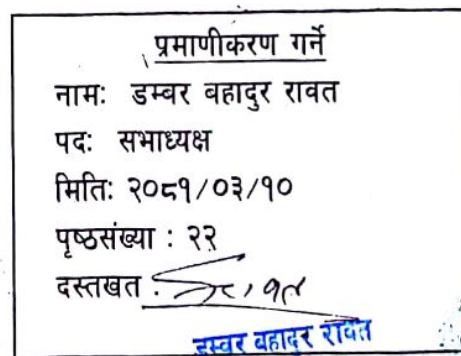 प्रमाणीकरण गर्ने
नामः डम्बर बहादुर रावत
पदः सभाध्यक्ष
मितिः २०८१/०३/१०
पृष्ठसंख्या : २२
दस्तखत :
डम्बर बहादुर रावत